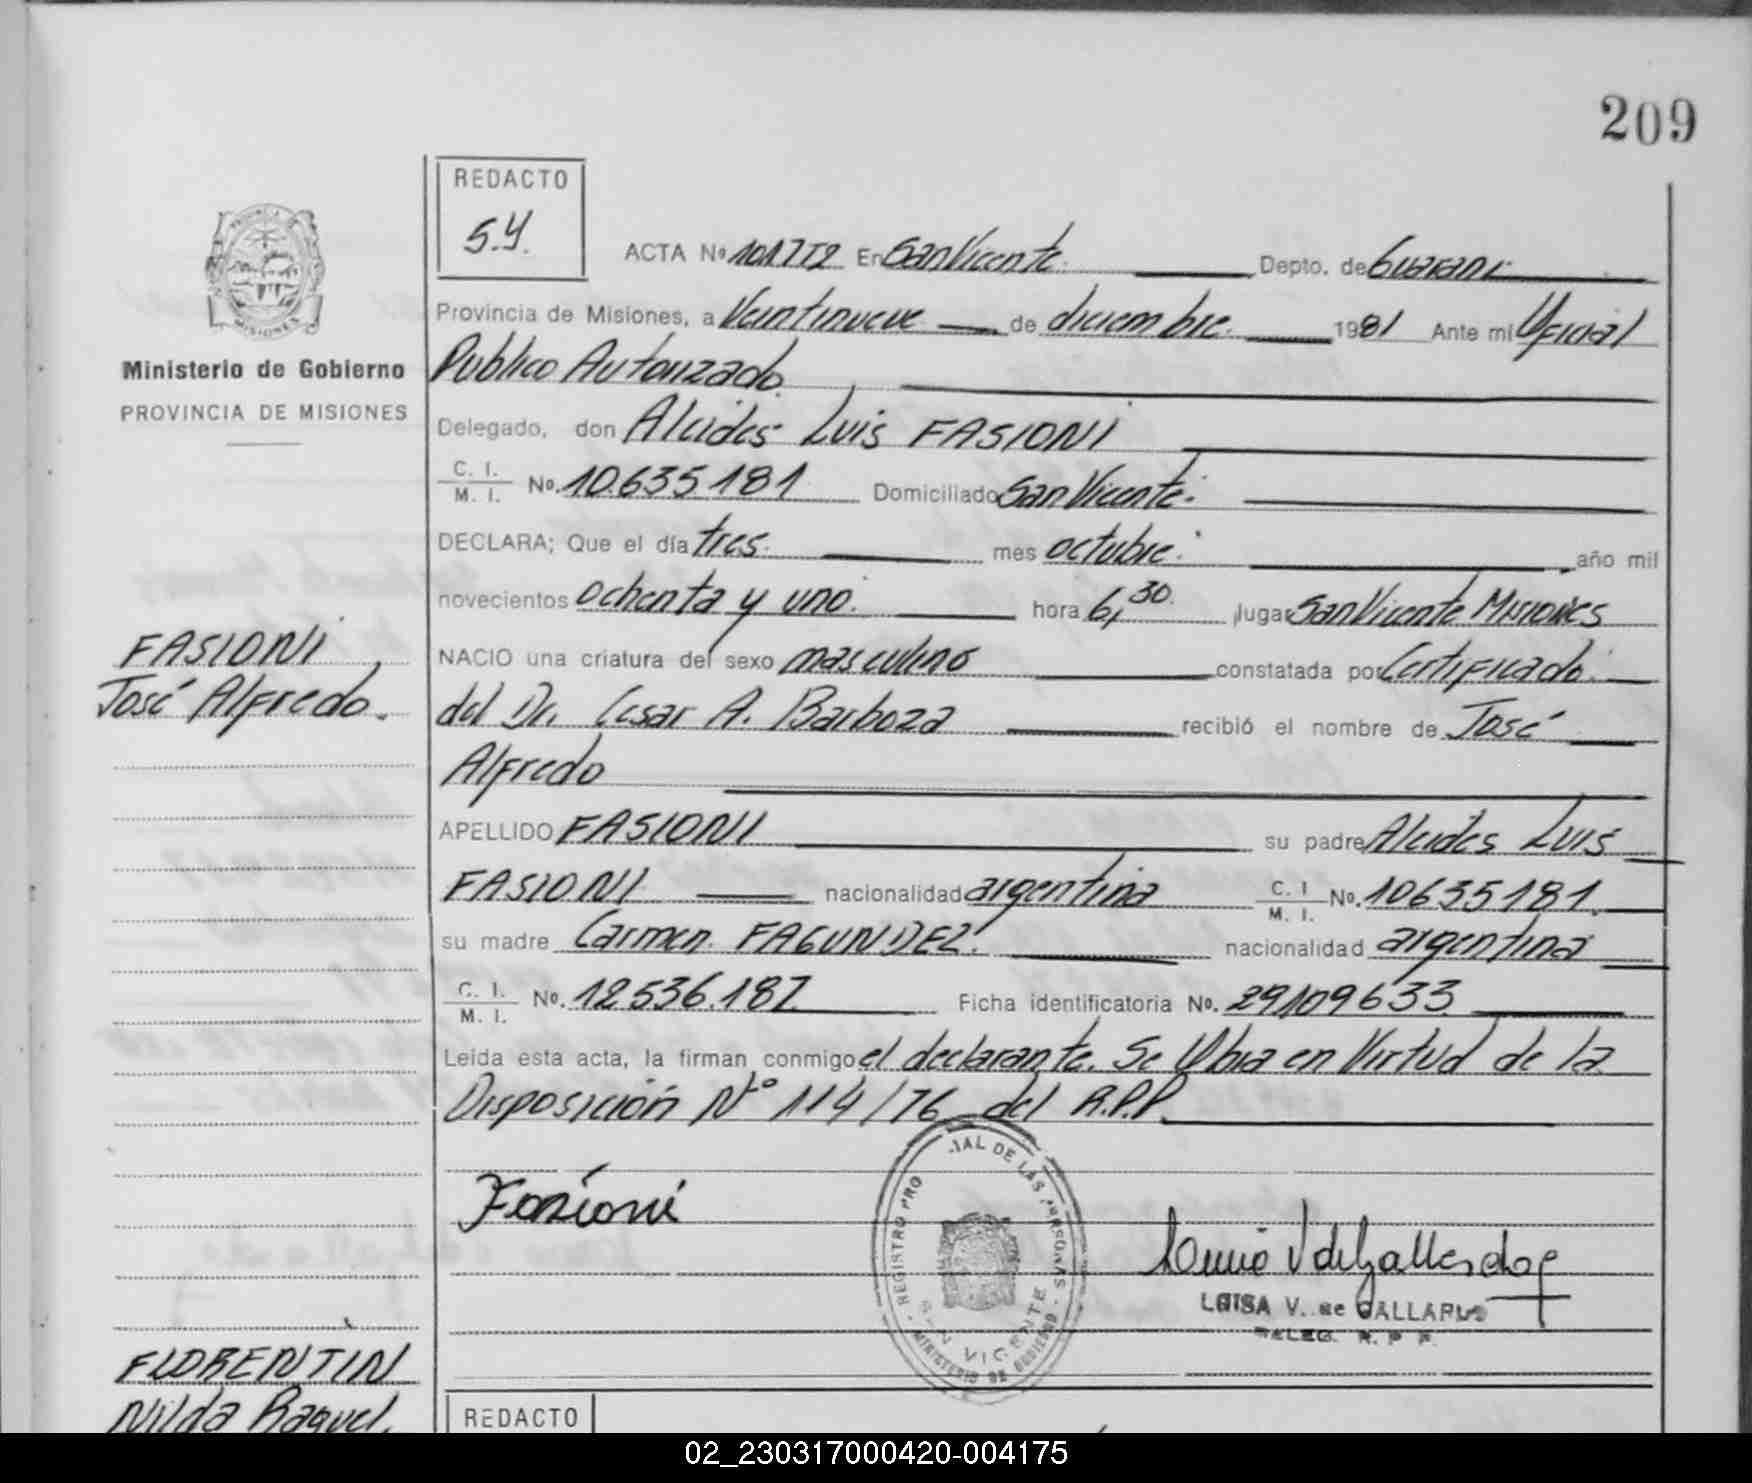 209
REDACTO
S.Y.
ACTA No 101772 En San Vicente. Depto. de Guarani
Provincia de Misiones, a Veintinueve de diciembre. 1981 Ante mi Oficial
Publico Autorizado.
Delegado, don Alcides Luis FASIONI
C. I.
M. I. No. 10.635.181 Domiciliado San Vicente.
DECLARA; Que el día tres. mes octubre. año mil
novecientos ochenta y uno. hora 6,30. lugar San Vicente Misiones
NACIO una criatura del sexo masculino constatada por Certificado.
del Dr. Cesar A. Barboza recibió el nombre de José
Alfredo
APELLIDO FASIONI su padre Alcides Luis
FASIONI nacionalidad argentina C. I. M. I. No. 10635181.
su madre Carmen FAGUNDEZ. nacionalidad argentina
C. I.
M. I. No. 12.536.187 Ficha identificatoria No. 29109633
Leida esta acta, la firman conmigo el declarante. Se Obra en Virtud de la
Disposición Nº 114/76 del R.P.P.
Fasioni
REGISTRO PRO IAL DE LAS PERSONAS
SAN VICENTE
MINISTERIO DE GOBIERNO
LUISA V. de GALLARDO
DELEG. R. P. P.
REDACTO
MISIONES
Ministerio de Gobierno
PROVINCIA DE MISIONES
FASIONI
José Alfredo.
FLORENTIN
Nilda Raquel.
02_230317000420-004175